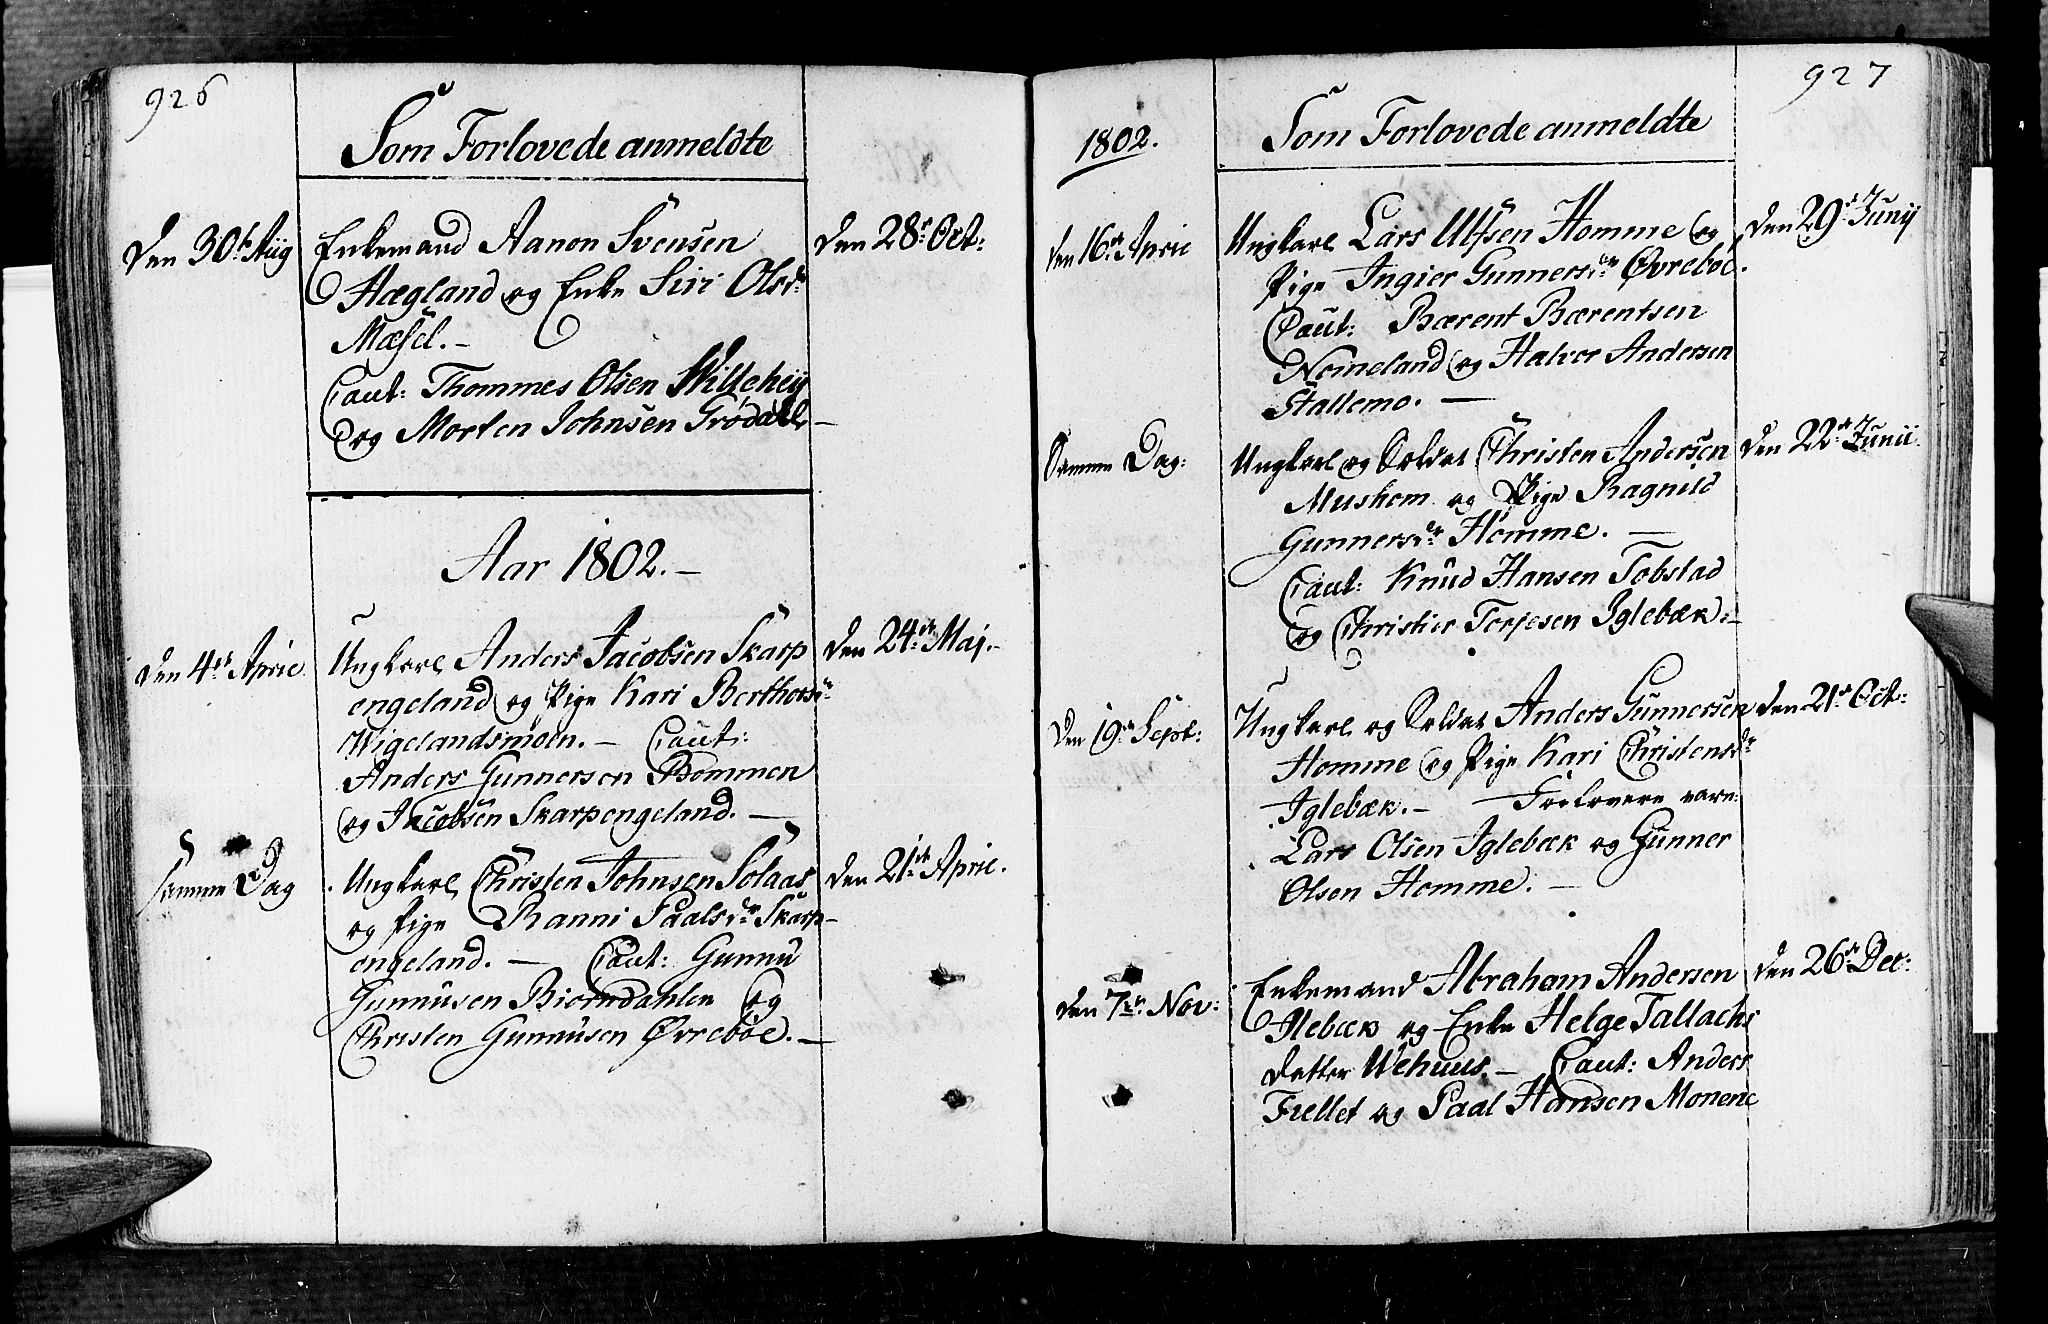 926
Som Forlovede anmeldte
Den 30te Aug
Enkemand Aanon Svensen
Hægland og Enke Siri Olsdr
Mæsel. -
Caut: Thommes Olsen
og Morten Johnsen Grødahl -
Den 28de Oct:
Aar 1802. -
Den 4de April
Ungkarl Anders Jacobsen Skarp
engeland og Pige Kari Berthorsdr
Wigelandsmoen. - Caut:
Anders Gunnersen Bommen
og Jacobsen Skarpengeland. -
Den 24de Maj. -
Samme Dag
Ungkarl Christen Johnsen Solaas
og Pige Ranni Paalsdr Skarp-
engeland. - Caut: Gunnu
Gunnusen Biorndahlen og
Christen Gunnusen Øvrebøe. -
Den 21de April.
927
1802.
Som Forlovede anmeldte
Den 16de April
Ungkarl Lars Ulfsen Homme og
Pige Ingier Gunnersdr Øvrebøe.
Caut: Bærent Bærentsen
Nomeland og Halvor Andersen
Stallemo. -
Den 29de Junij
Samme Dag:
Ungkarl og Soldat Christen Andersen
Mushom og Pige Ragnild
Gunnersdr Homme. -
Caut: Knud Hansen Tobstad
og Christier Torjesen Iglebæk. -
Den 22de Junii.
Den 19de Sept:
Ungkarl og Soldat Anders Gunnersen
Homme og Pige Kari Christensdr
Iglebæk. - Forlovere vare:
Lars Olsen Iglebæk og Gunner
Olsen Homme. -
Den 21de Oct:
Den 7de Nov:
Enkemand Abraham Andersen
Ilebæk og Enke Helge Tallachs
datter Wehuus. - Caut: Anders
Frellet og Paal Hansen Monene
Den 26de Dec: